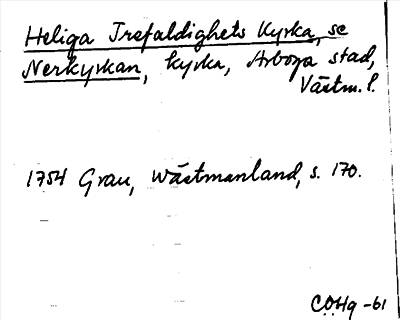 Heliga Trefaldighets kyrka, se
Nerkyrkan, kyrka, Arboga stad,
Västm. l.
1754 Grau, Wästmanland, s. 170.
COHg -61